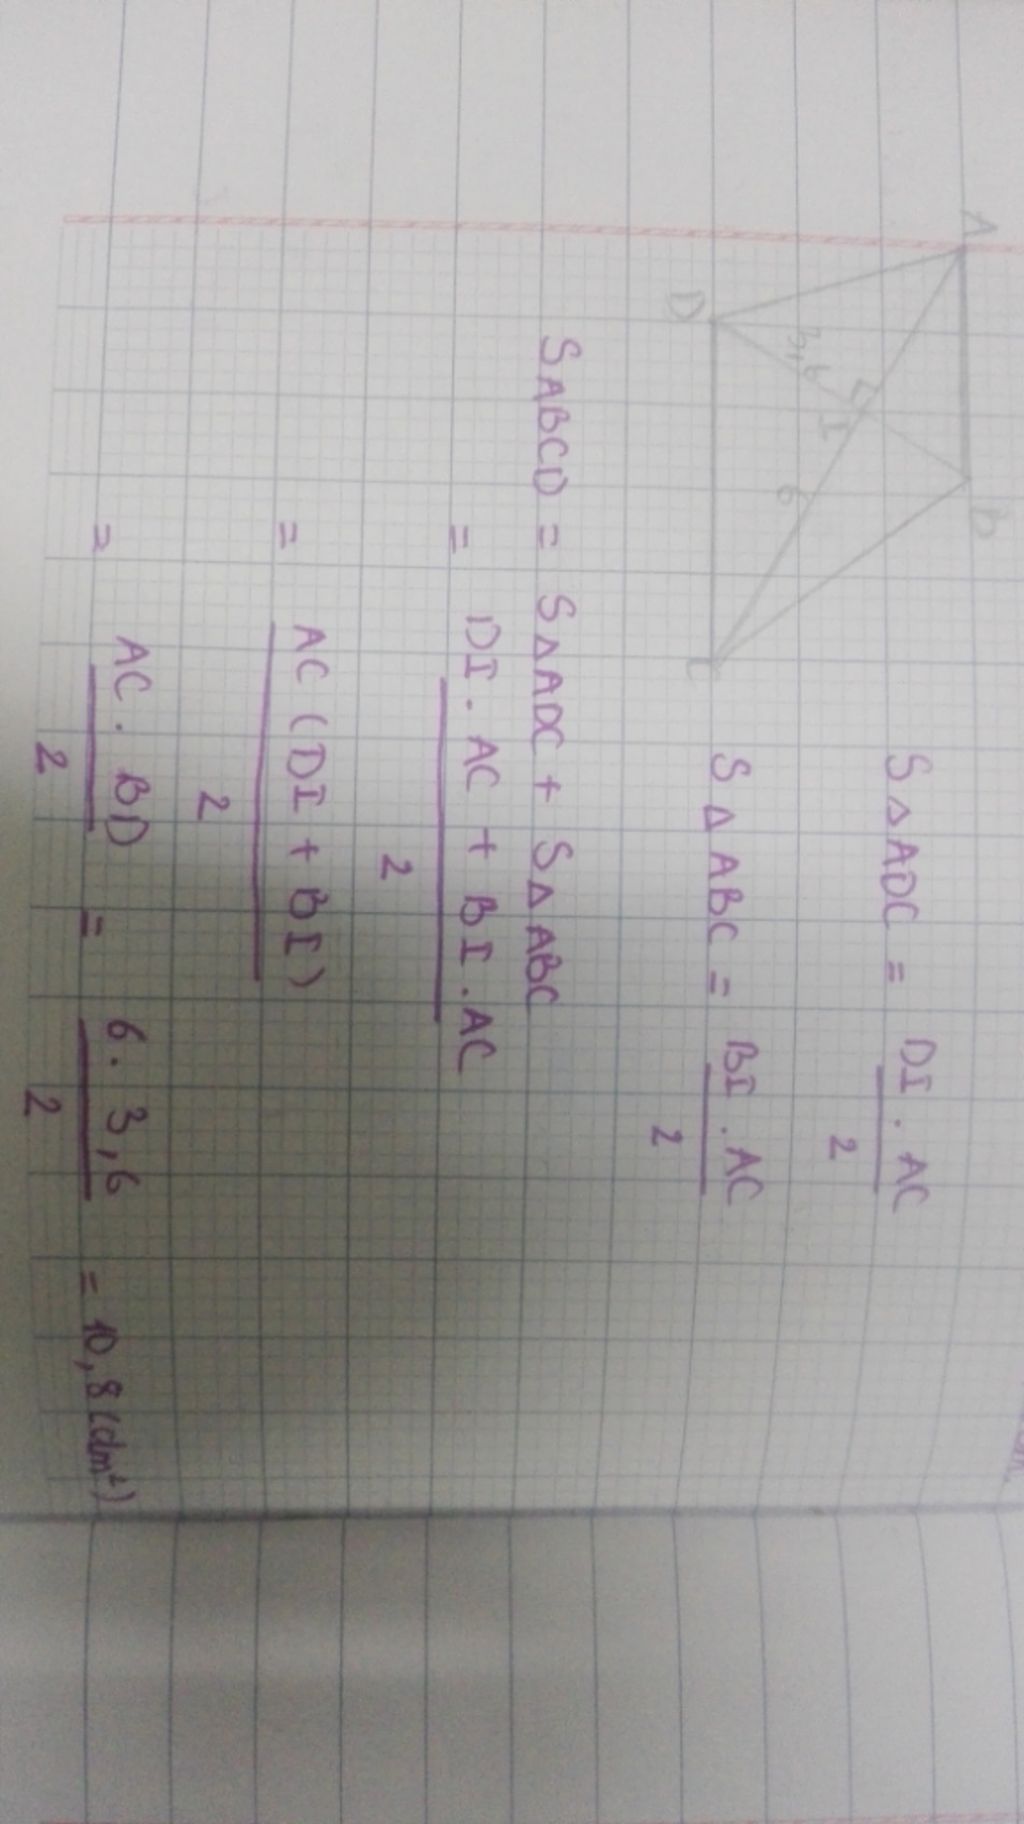 A B
3,6 I 6
D C
S△ADC = DI . AC / 2
S△ABC = BI . AC / 2
SABCD = S△ADC + S△ABC
= DI . AC + BI . AC / 2
= AC (DI + BI) / 2
= AC . BD / 2 = 6 . 3,6 / 2 = 10,8 (dm²)